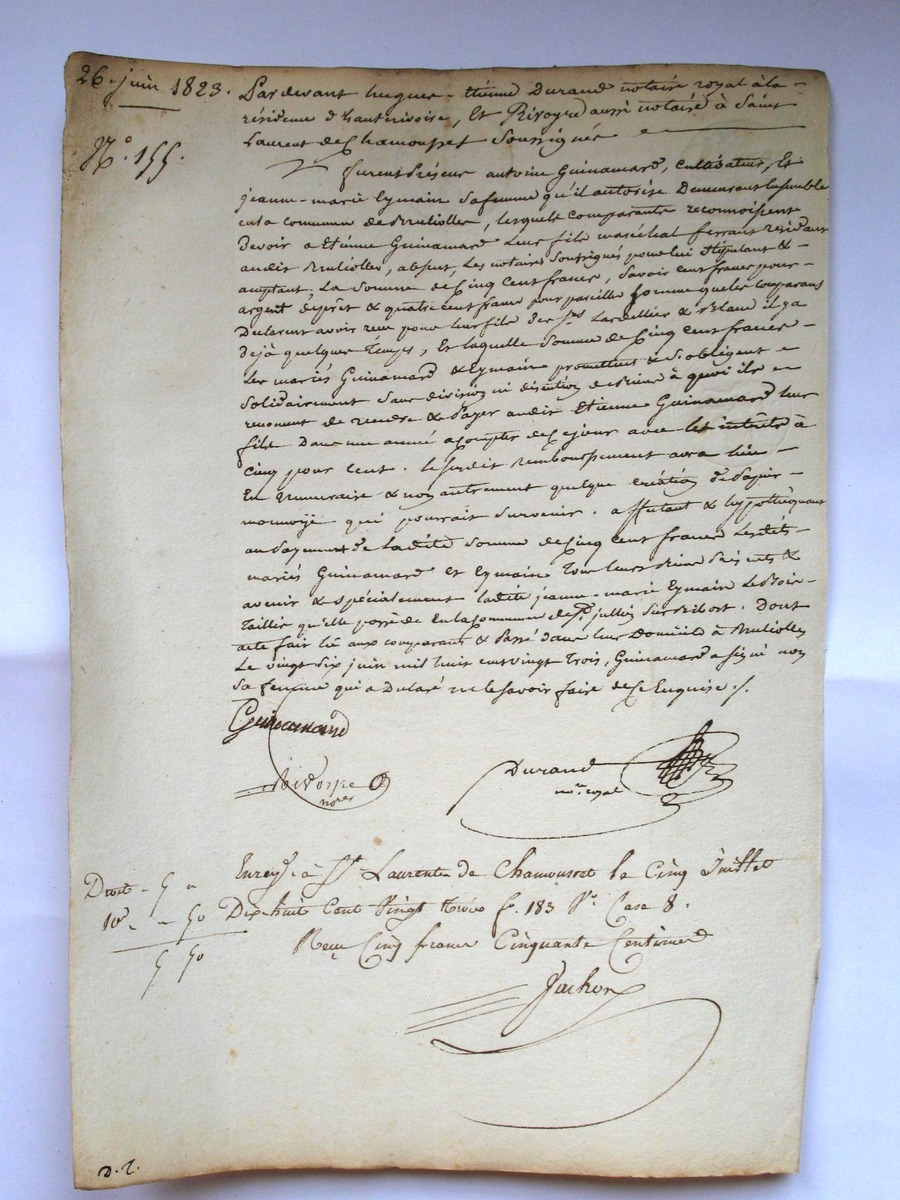 26 juin 1823.
N.º 155.
Pardevant hugues-étienne Durand notaire royal à la
résidence d'hauterivoire, Et Rivoyre aussi notaire à Saint
Laurent de Chamousset Soussignés
furent Présens antoine Guinamard, cultivateur, Et
jeanne-marie Eymain sa femme qu'il autorise Demeurant Ensemble
en la commune de Brulioles, lesquels comparants reconnoissent
devoir a Etienne Guinamard leur fils maréchal ferrant résidant
audit Brulioles, absent, les notaires Soussignés pour lui stipulant &
acceptant, la Somme de Cinq Cent francs, Savoir cent francs pour
argent de prêt & quatre cent francs pour pareille somme que les comparans
Déclarent avoir reçu pour leur fils des Srs Lardellier & Blanc il y a
déjà quelque temps, Et laquelle Somme de Cinq Cent francs
les mariés Guinamard & Eymain promettent & s'obligent
solidairement sans division ni discution de biens à quoi ils
renoncent de rendre & Payer audit Etienne Guinamard leur
fils Dans une année a compter de Ce jour avec les intérêts à
Cinq pour Cent. le susdit remboursement aura lieu
En numeraire & non autrement quelque création de Papier
monnoye qui pourrait Survenir. affectant & hypothéquant
au Payement de ladite Somme de Cinq Cent francs lesdits
mariés Guinamard Et Eymain tous leurs biens Présents &
avenir & spécialement ladite jeanne-marie Eymain le Bois
Taillis qu'elle possède en la Commune de St jullien Sur Bibost. Dont
acte fait lu aux comparants & Passé dans leur Domicile à Brulioles
Le vingt Six juin mil huit cent vingt trois, Guinamard a signé non
Sa femme qui a Déclaré ne le savoir faire de Ce Enquise ./.
Guinamard
Rivoyre
nores
Durand
nre royal
Enregé à St Laurent de Chamousset le Cinq Juillet
Dix huit Cent Vingt trois f. 183 Vo Case 8.
Reçu Cinq francs Cinquante Centimes
Droit - 5 "
10e - - 50
5 50
Jachon
D. T.